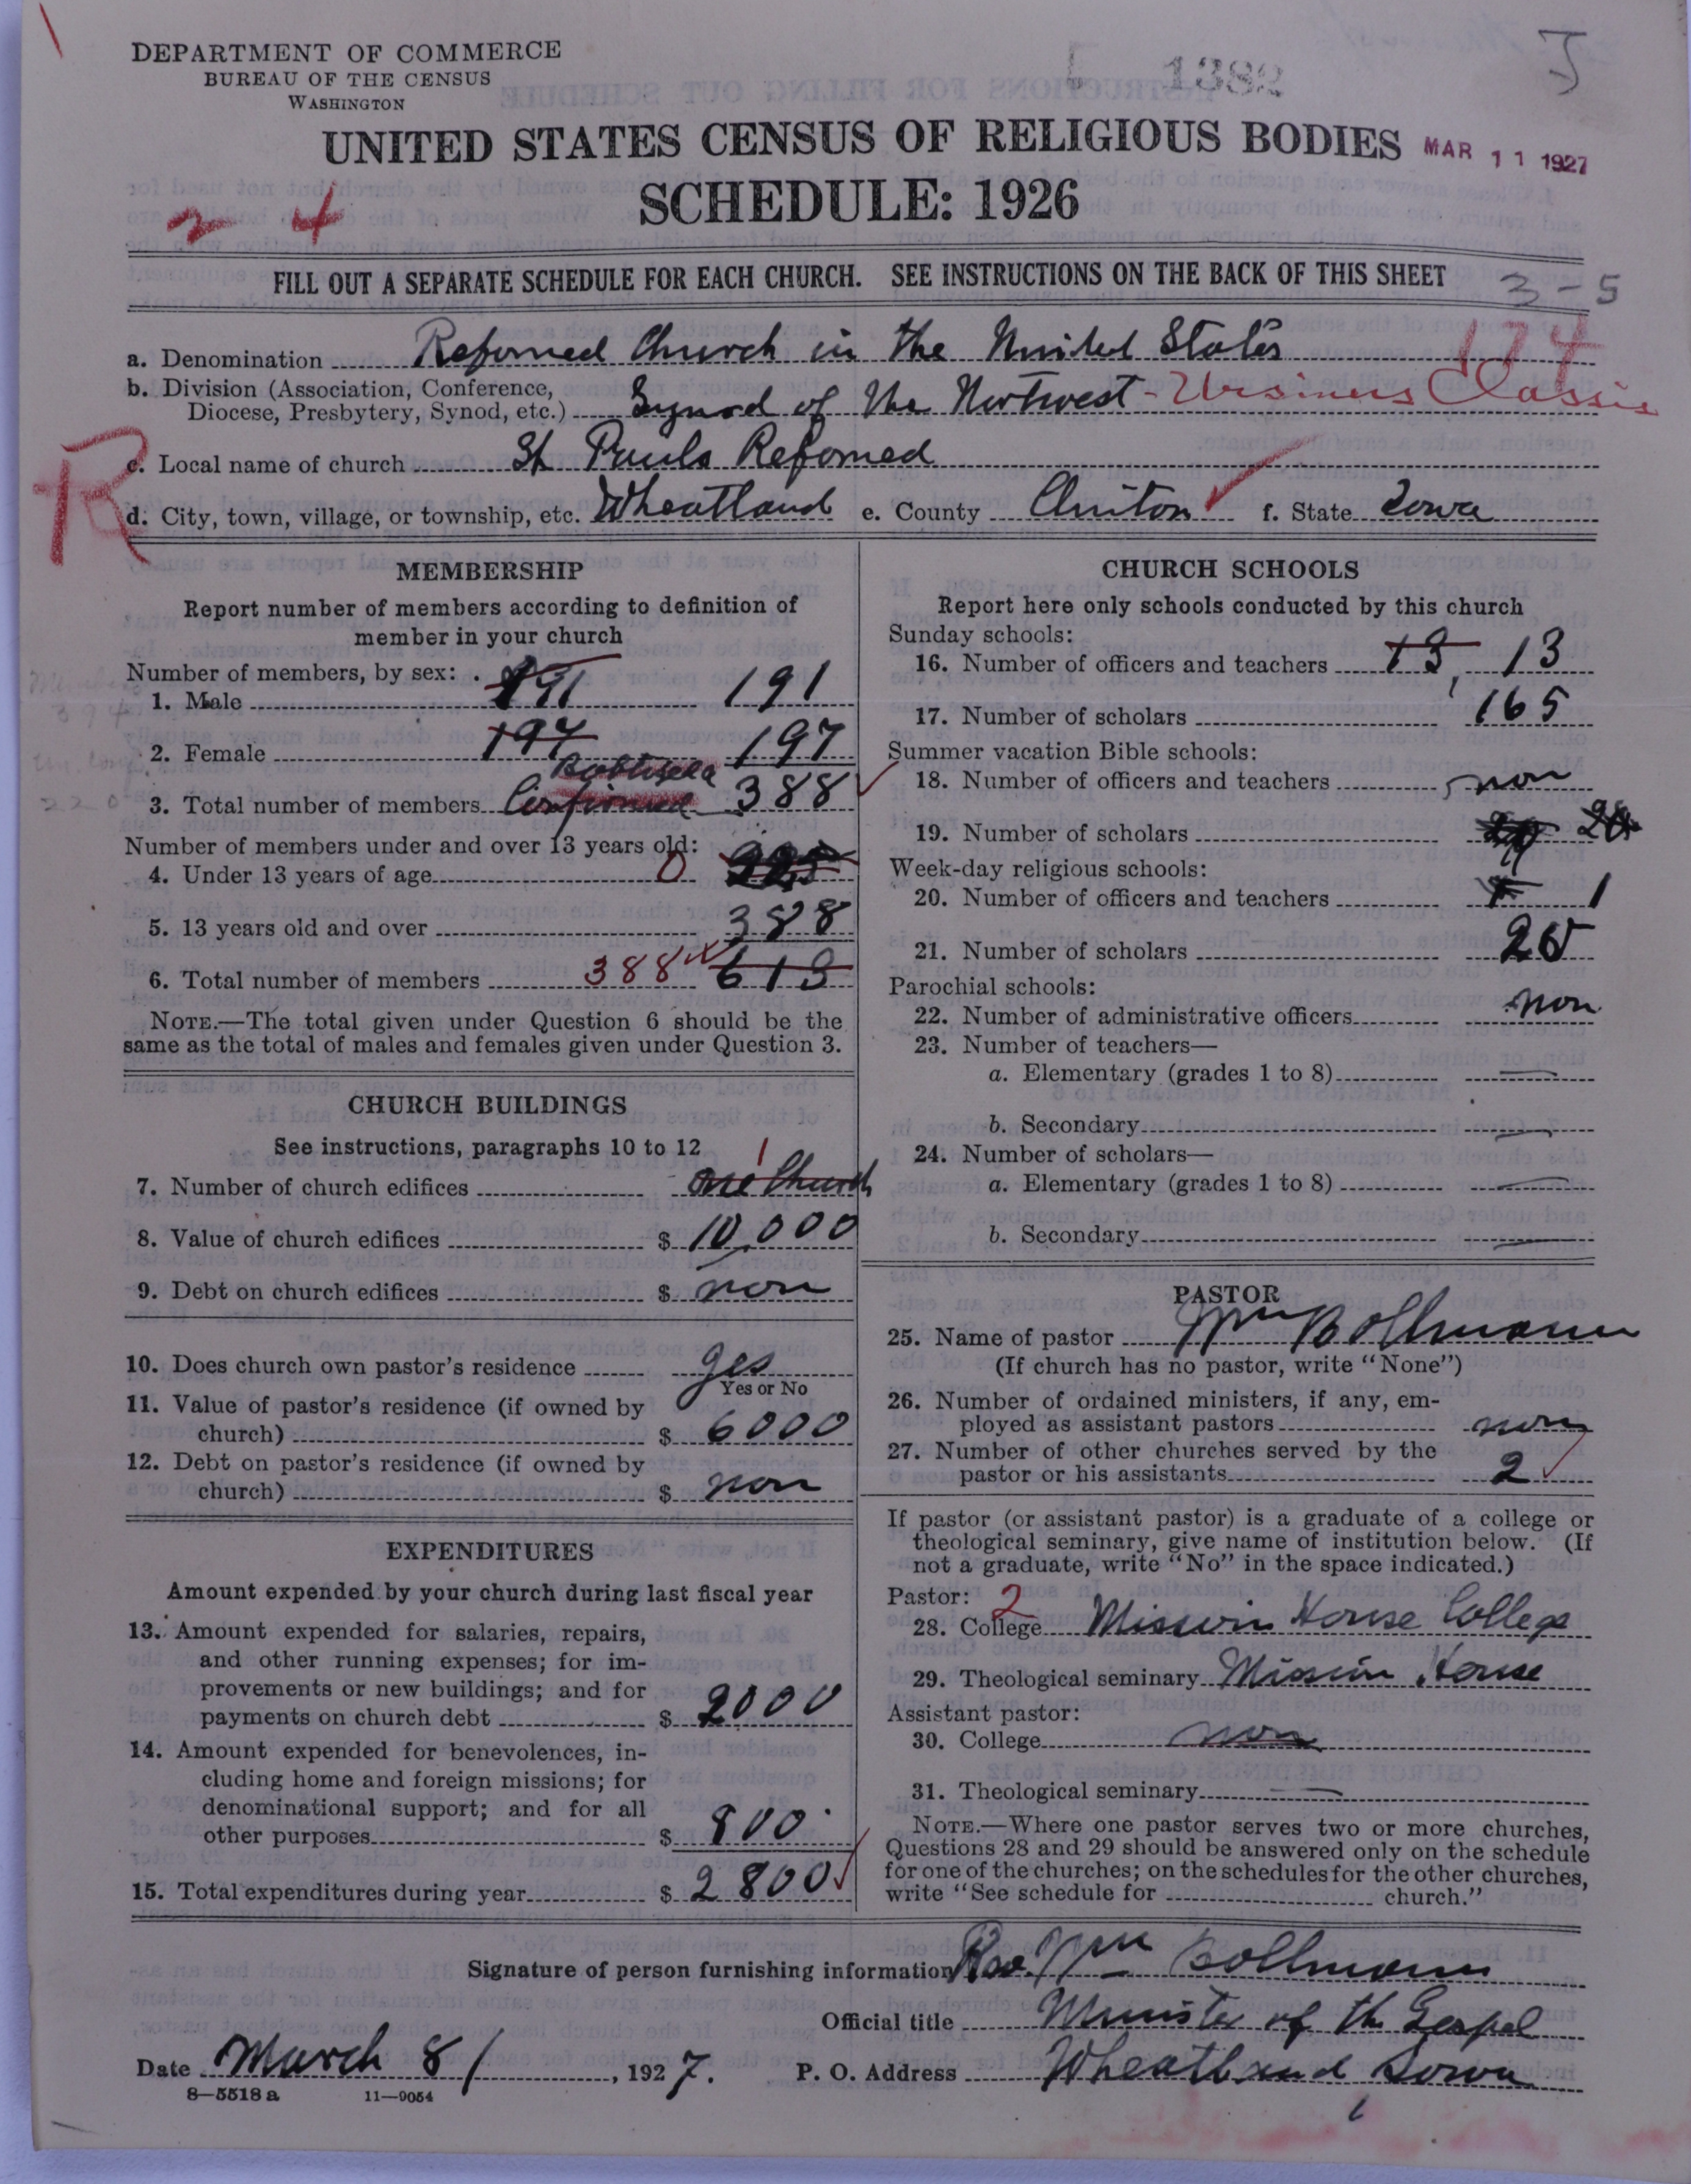 DEPARTMENT OF COMMERCE
BUREAU OF THE CENSUS
WASHINGTON
1382
J
UNITED STATES CENSUS OF RELIGIOUS BODIES
MAR 11 1927
SCHEDULE: 1926
2 4
FILL OUT A SEPARATE SCHEDULE FOR EACH CHURCH. SEE INSTRUCTIONS ON THE BACK OF THIS SHEET
3-5
174
a. Denomination Reformed Church in the United States
b. Division (Association, Conference,
Diocese, Presbytery, Synod, etc.) Synod of the Nortwest - Ursinus Classis
R
c. Local name of church St Pauls Reformed
d. City, town, village, or township, etc. Wheatland e. County Clinton f. State Iowa
MEMBERSHIP
Report number of members according to definition of
member in your church
Number of members, by sex:
1. Male 191 191
2. Female 197 197
Members
394
220
3. Total number of members Confirmed 388
Number of members under and over 13 years old:
4. Under 13 years of age 0 225
5. 13 years old and over 388
6. Total number of members 388 613
NOTE.—The total given under Question 6 should be the
same as the total of males and females given under Question 3.
CHURCH BUILDINGS
See instructions, paragraphs 10 to 12
7. Number of church edifices 1 One Church
8. Value of church edifices $ 10,000
9. Debt on church edifices $ non
10. Does church own pastor's residence yes
Yes or No
11. Value of pastor's residence (if owned by
church) $ 6000
12. Debt on pastor's residence (if owned by
church) $ non
EXPENDITURES
Amount expended by your church during last fiscal year
13. Amount expended for salaries, repairs,
and other running expenses; for im-
provements or new buildings; and for
payments on church debt $ 2000
14. Amount expended for benevolences, in-
cluding home and foreign missions; for
denominational support; and for all
other purposes $ 800
15. Total expenditures during year $ 2800
CHURCH SCHOOLS
Report here only schools conducted by this church
Sunday schools:
16. Number of officers and teachers 13, 13
17. Number of scholars 165
Summer vacation Bible schools:
18. Number of officers and teachers non
19. Number of scholars
Week-day religious schools:
20. Number of officers and teachers 1
21. Number of scholars 25
Parochial schools:
22. Number of administrative officers non
23. Number of teachers—
a. Elementary (grades 1 to 8)
b. Secondary
24. Number of scholars—
a. Elementary (grades 1 to 8)
b. Secondary
PASTOR
25. Name of pastor Wm Bollmann
(If church has no pastor, write "None")
26. Number of ordained ministers, if any, em-
ployed as assistant pastors non
27. Number of other churches served by the
pastor or his assistants 2
If pastor (or assistant pastor) is a graduate of a college or
theological seminary, give name of institution below. (If
not a graduate, write "No" in the space indicated.)
Pastor: 2
28. College Mission House College
29. Theological seminary Mission House
Assistant pastor:
30. College non
31. Theological seminary
NOTE.—Where one pastor serves two or more churches,
Questions 28 and 29 should be answered only on the schedule
for one of the churches; on the schedules for the other churches,
write "See schedule for church."
Signature of person furnishing information Rev. Wm Bollmann
Official title Minister of the Gospel
Date March 8/, 1927. P. O. Address Wheatland Iowa
8—5518 a 11—9054